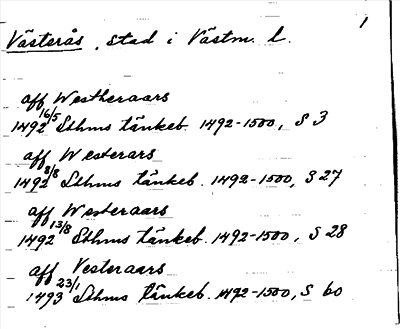 1
Västerås, stad i Västm. l.
aff Westheraars
1492 16/5 Sthms tänkeb. 1492-1500, S 3
aff Westerars
1492 8/8 Sthms tänkeb. 1492-1500, S 27
aff Westeraars
1492 13/8 Sthms tänkeb. 1492-1500, S 28
aff Vesteraars
1493 23/1 Sthms tänkeb. 1492-1500, S 60